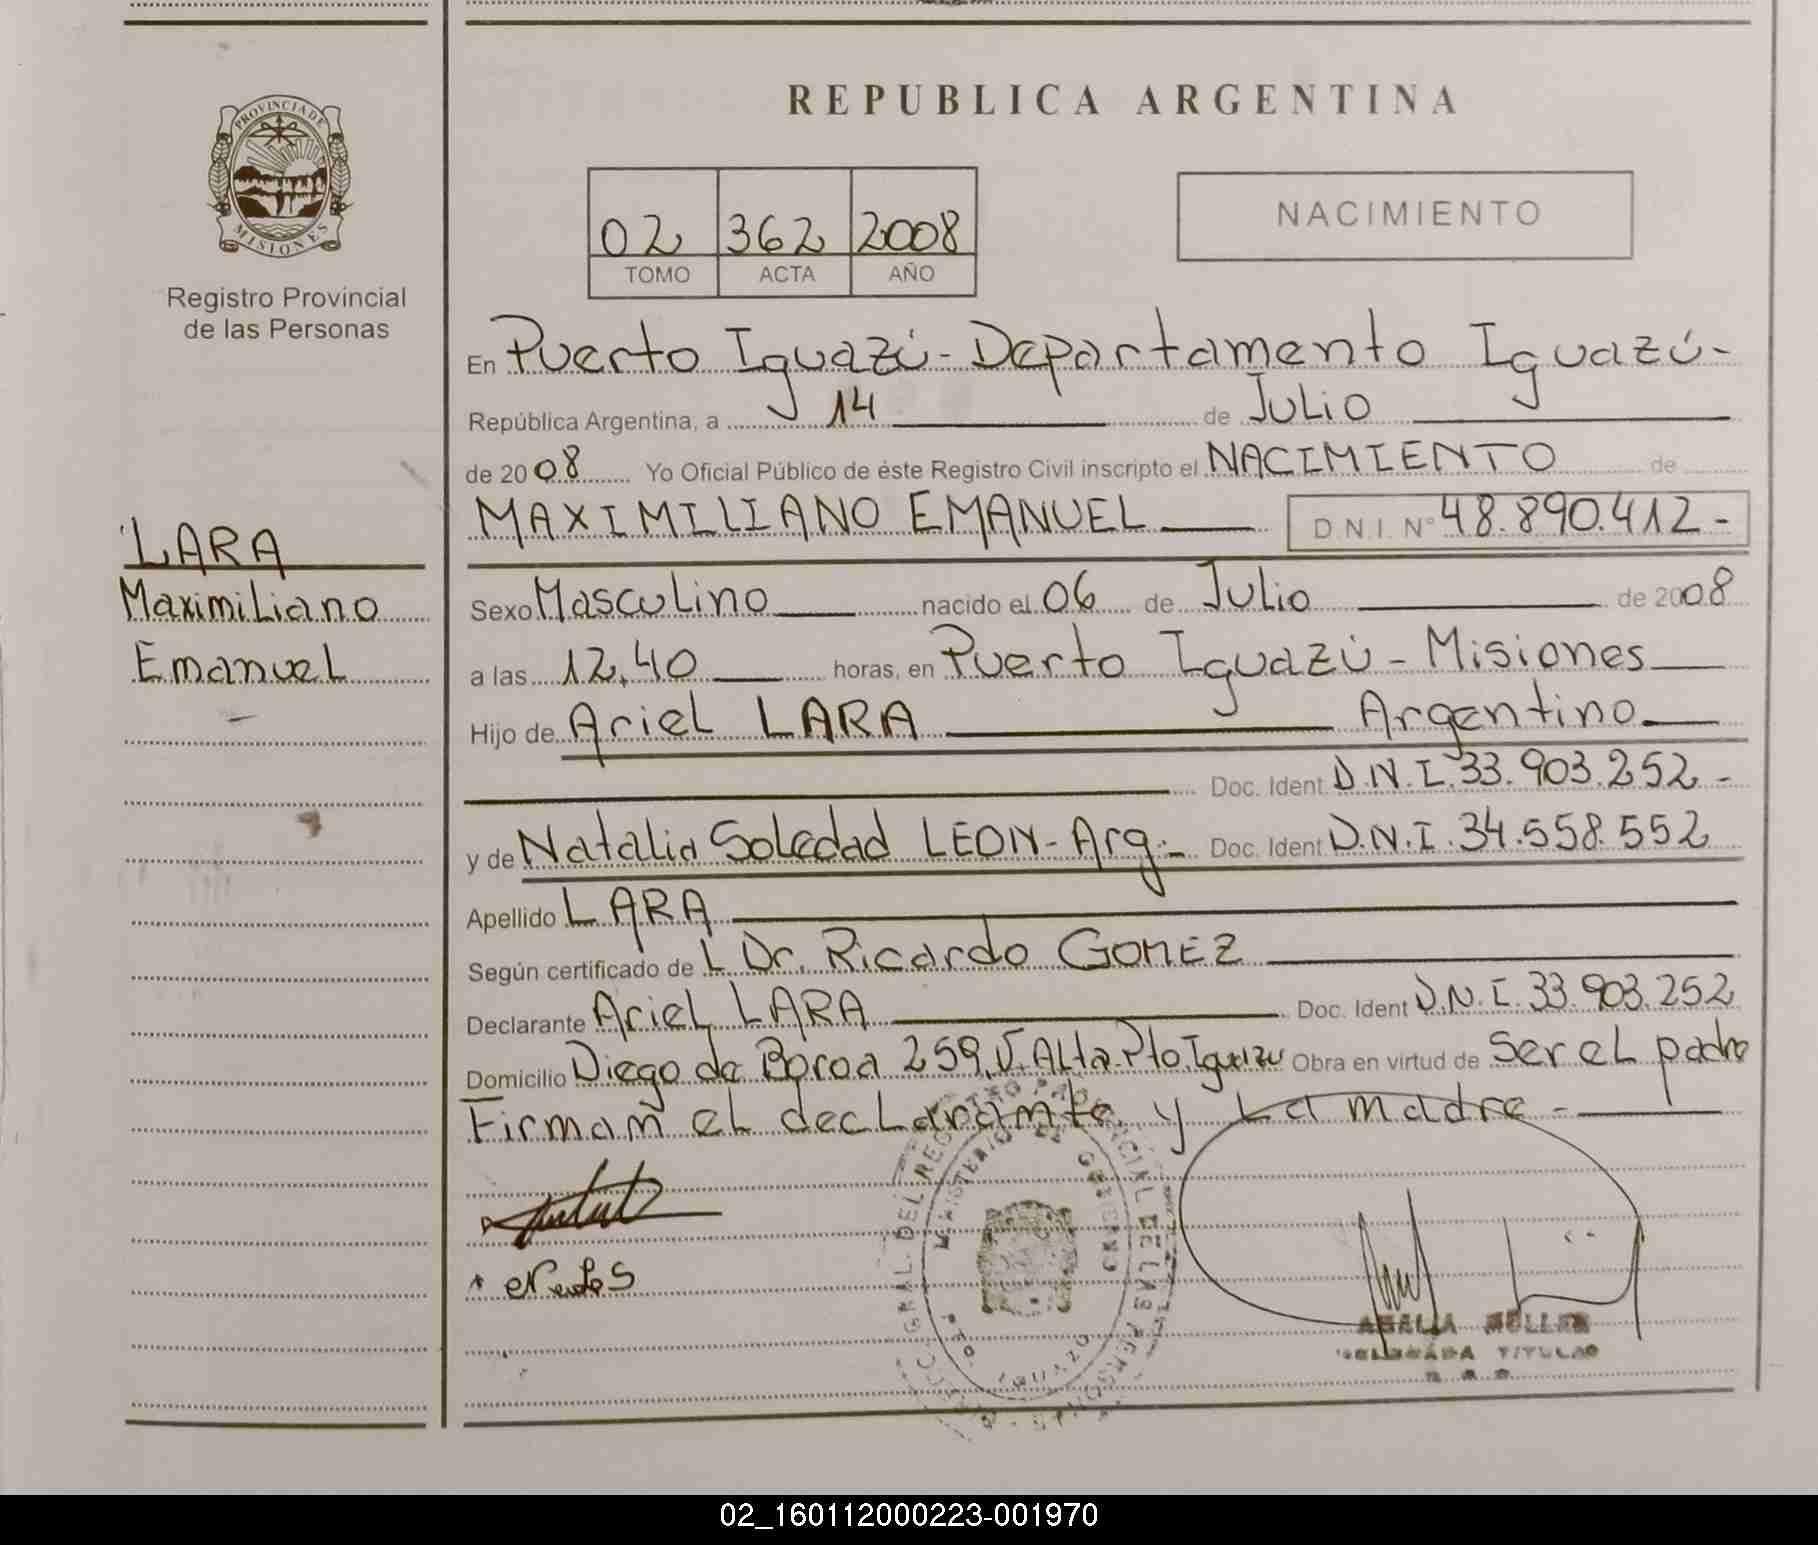 REPUBLICA ARGENTINA
PROVINCIA DE
MISIONES
Registro Provincial
de las Personas
02 362 2008
TOMO ACTA AÑO
NACIMIENTO
En Puerto Iguazú - Departamento Iguazú -
República Argentina, a 14 de Julio
de 2008 Yo Oficial Público de éste Registro Civil inscripto el NACIMIENTO de
MAXIMILIANO EMANUEL D.N.I. N° 48.890.412 -
LARA
Maximiliano
Emanuel
Sexo Masculino nacido el 06 de Julio de 2008
a las 12,40 horas, en Puerto Iguazú - Misiones
Hijo de Ariel LARA Argentino
Doc. Ident D.N.I. 33.903.252 -
y de Natalia Soledad LEON - Arg.- Doc. Ident D.N.I. 34.558.552
Apellido LARA
Según certificado de L Dr. Ricardo GOMEZ
Declarante Ariel LARA Doc. Ident D.N.I. 33.903.252
Domicilio Diego de Boroa 259, V. Alta. Pto. Iguazu Obra en virtud de Ser el padre
Firman el declarante y la madre -
MINISTERIO DE GOBIERNO
AMALIA MULLER
DELEGADA TITULAR
02_160112000223-001970